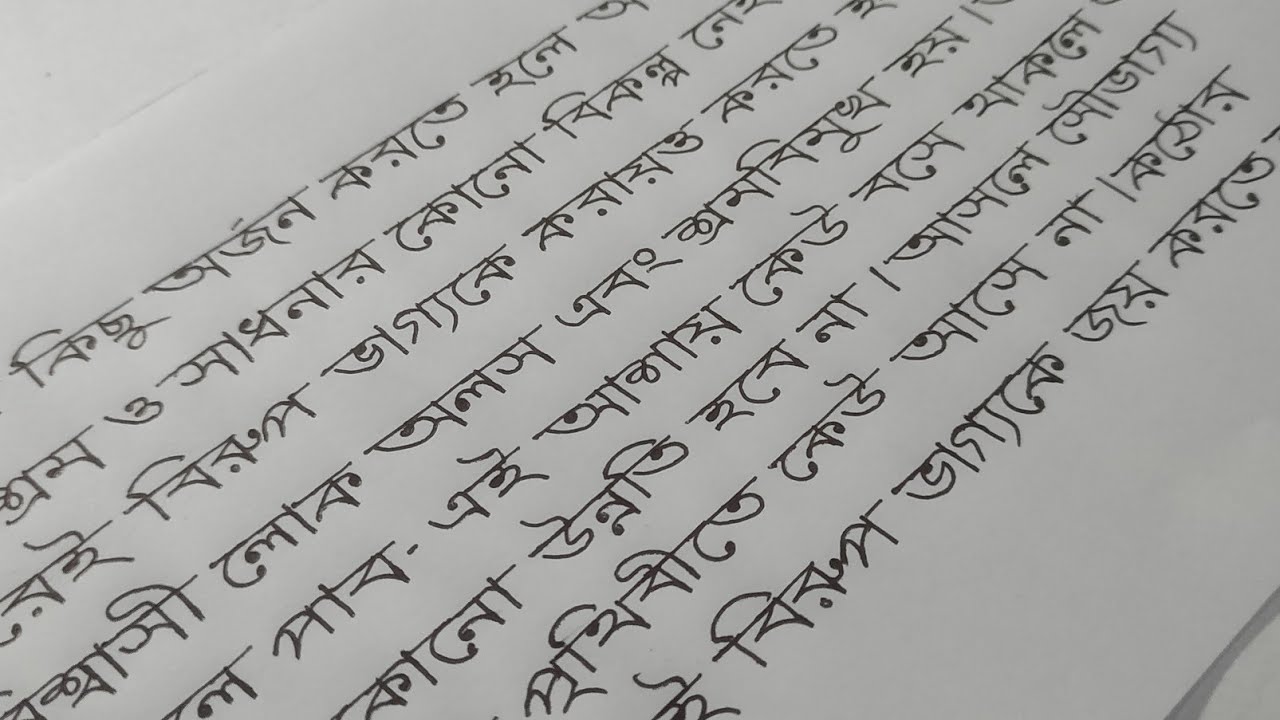 কিছু অর্জন করতে হলে
শ্রম ও সাধনার কোনো বিকল্প নেই
বিরুপ ভাগ্যকে করায়ত্ত করতে
লোক অলস এবং শ্রমবিমুখ হয়।
পাব- এই আশায় কেউ বসে থাকলে
কোনো উন্নতি হবে না। আসলে সৌভাগ্য
পৃথিবীতে কেউ আসে না। কঠোর
বিরুপ ভাগ্যকে জয় করতে